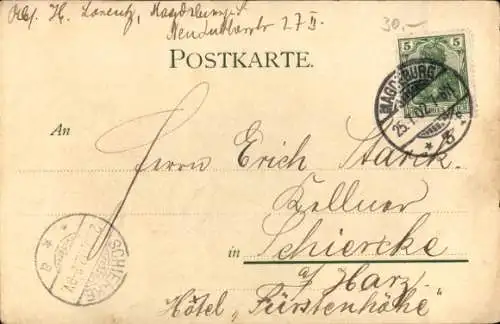 Abs. H. Lorentz, Magdeburg-S.
27 II.
30.-
POSTKARTE.
5 5
MAGDEBURG
An
Herrn Erich Starck
Kellner
in Schiercke
a/ Harz.
Hôtel "Fürstenhöhe"
SCHIERKE